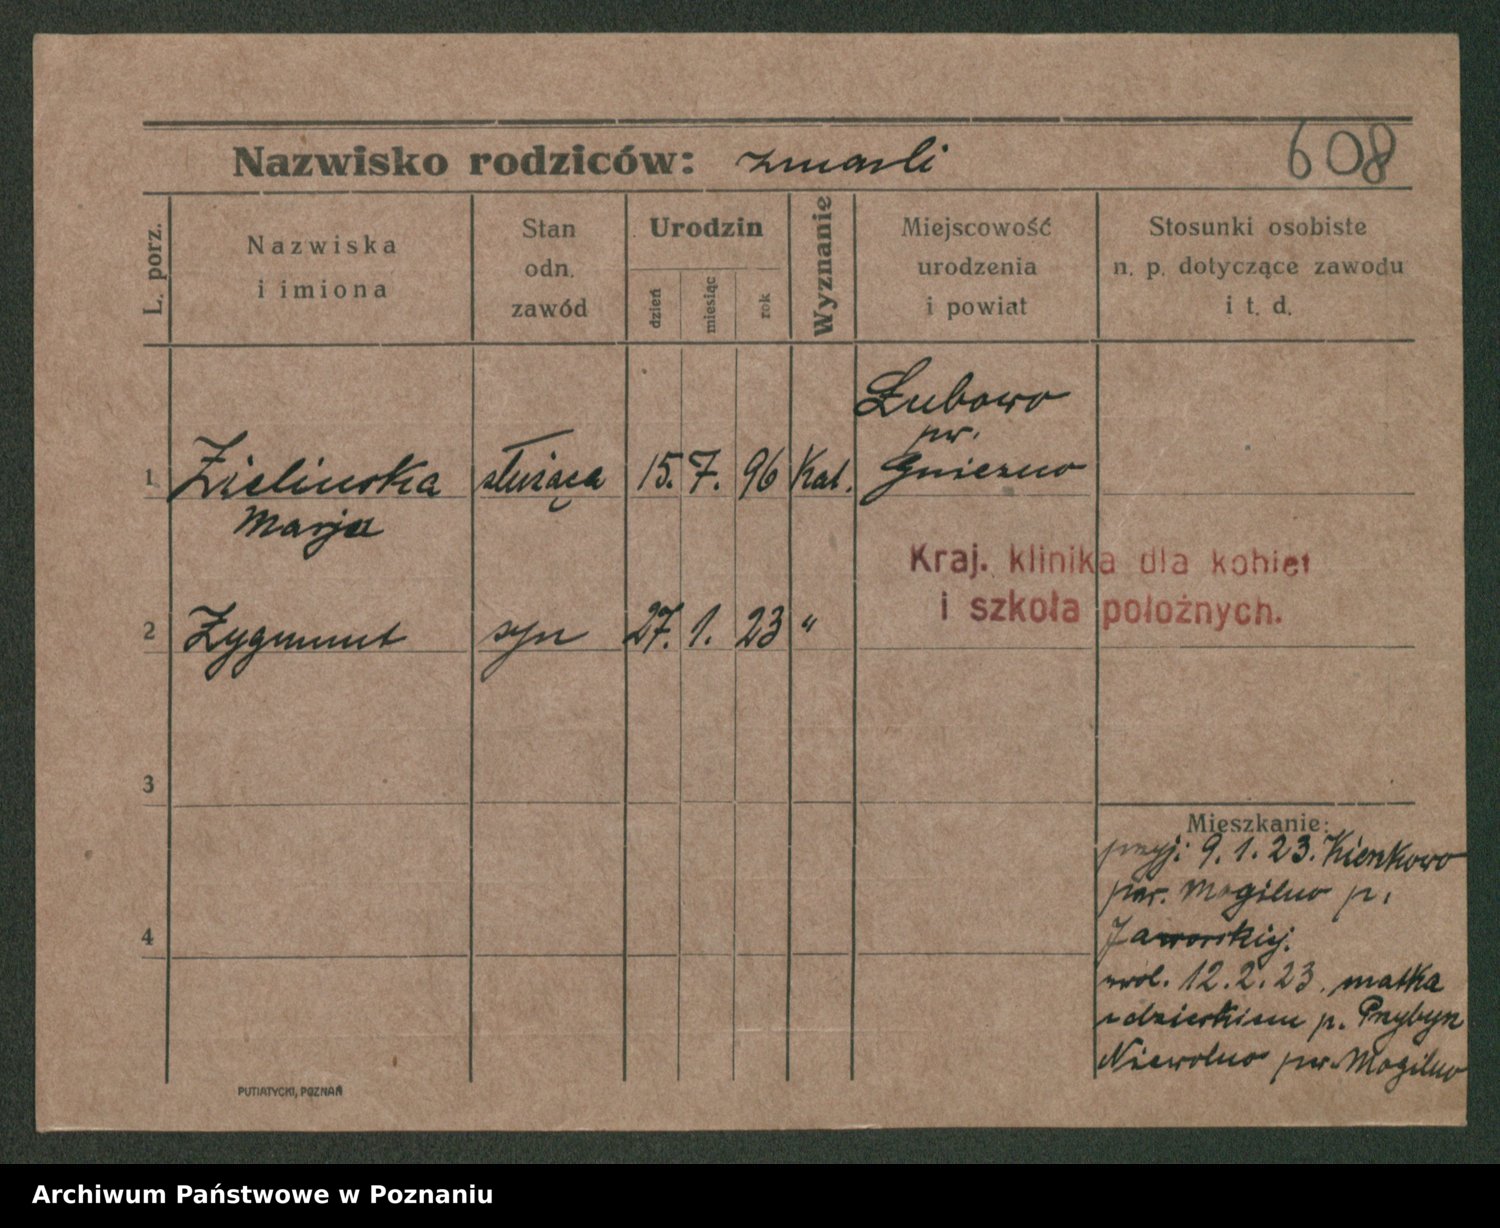 Nazwisko rodziców: zmarli
608
L. porz.
Nazwiska
i imiona
Stan
odn.
zawód
Urodzin
dzień
miesiąc
rok
Wyznanie
Miejscowość
urodzenia
i powiat
Stosunki osobiste
n. p. dotyczące zawodu
i t. d.
Łubowo
pw.
1 Zielinska służąca 15. 7. 96 Kat. Gniezno
Marja
Kraj. klinika dla kobiet
i szkoła położnych.
2 Zygmunt syn 27. 1. 23 "
3
4
Mieszkanie:
przyj: 9. 1. 23.
pow. Mogilno p.
Jaworskiej.
zwol. 12. 2. 23. matka
z dzieckiem p. Przybył
Niewolno pw. Mogilno
PUTIATYCKI, POZNAŃ
Archiwum Państwowe w Poznaniu